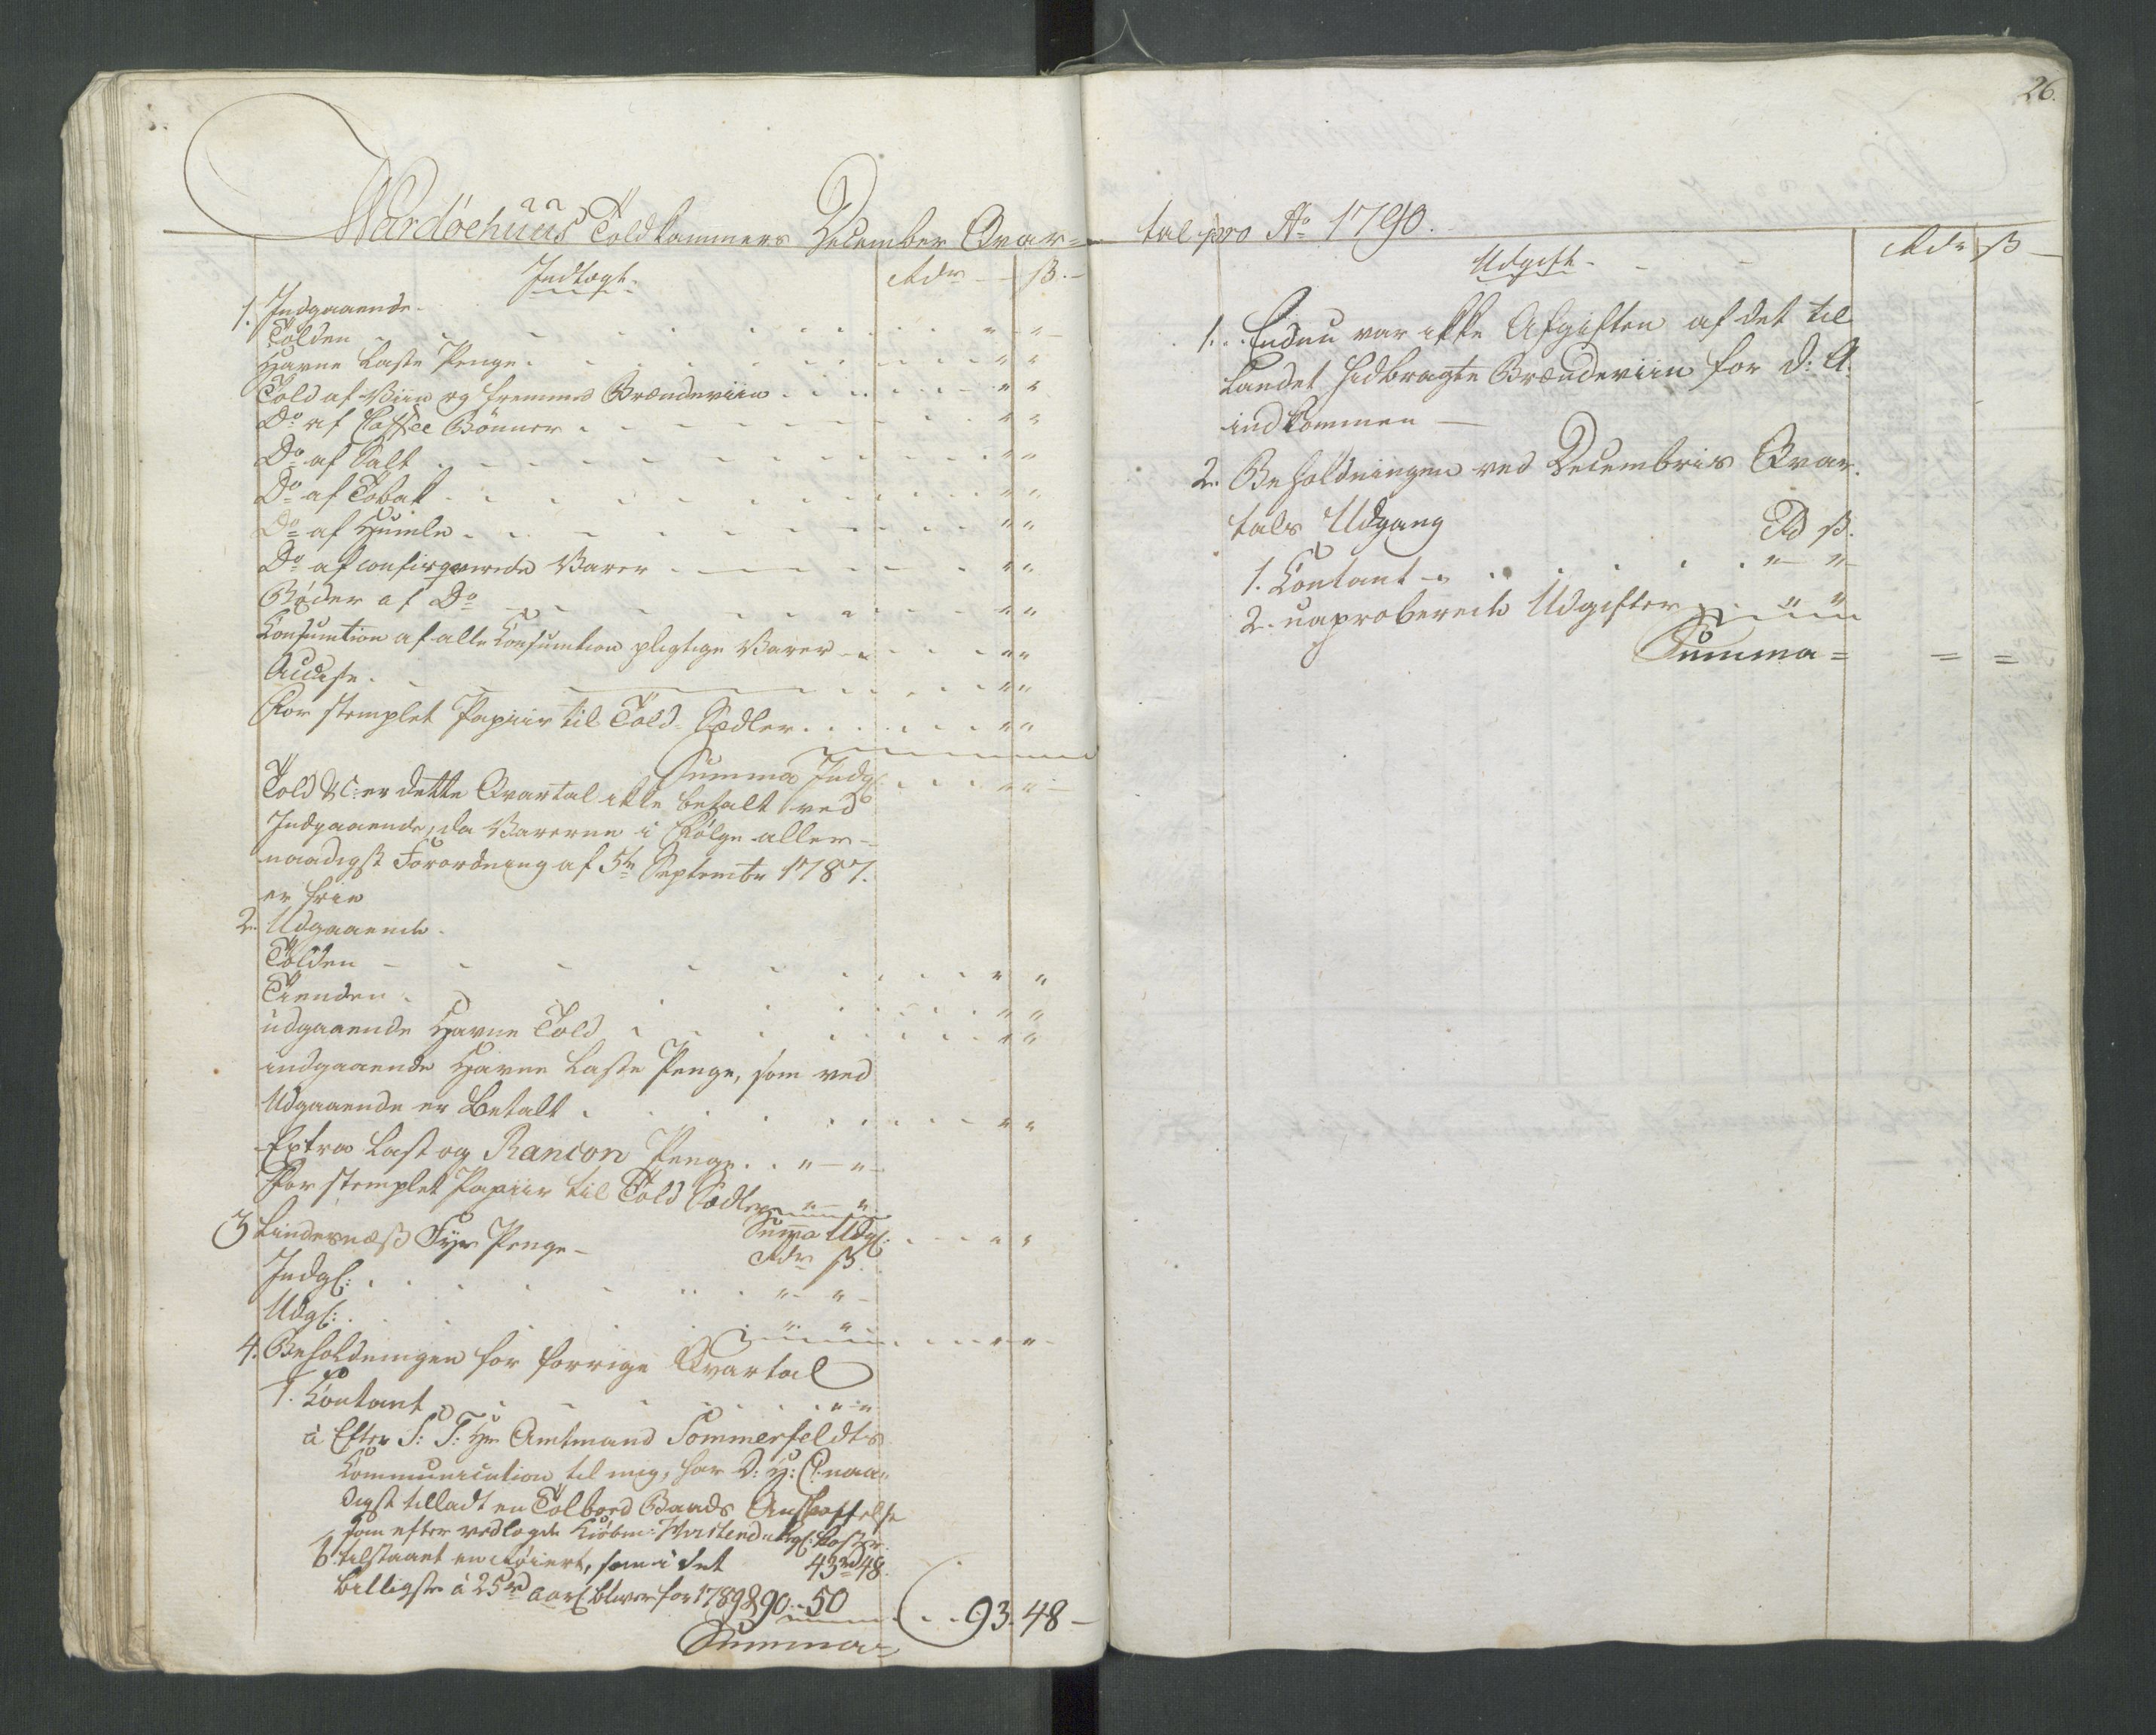 Wardöehuus Toldkammers December Qvar=
Indtægt.
Rdr ß.
1. Indgaaende.
Tolden
Havne Laste Penge
Told af Viin og fremmed Brændeviin
Do af Caffee Bönner
Do af Salt
Do af Tobak
Do af Humle
Do af confisqverede Varer
Bøder af Do
Consumtion af alle Consumtion pligtige Varer
Accise
For stemplet Papiir til Told-Sedler
Summa Indg:
Told &c: er dette Qvartal ikke betalt ved
Indgaaende, da Varerne i Følge aller=
naadigst Forordning af 5te Septembr 1787.
er frie
2. Udgaaende.
Tolden
Tienden
udgaaende Havne Told
indgaaende Havne Laste Penge, som ved
Udgaaende er Betalt
Extra Last og Rancon Penge
For stemplet Papiir til Told Sedler
Summa Udg:
3 Lindesnæss Fyr Penge
Rdr ß.
Indg:
Udg:
4. Beholdningen for forrige Qvartal
1. Contant
a Efter S: T: Hr Amtmand Sommerfeldts
Communication til mig, har D: H: C: naa=
digst tilladt en Tolboed Baads Anskaffelse
som efter vedlagde Kiöbm: koster
43rd 48.
b tilstaaet en som i det
billigste á 25rd aarl: bliver for 1789 & 90. 50
93. 48
Summa
26.
tal pro Ao 1790.
Udgift.
Rdr ß
1. Endnu var ikke Afgiften af det til
Landet hidbragte Brændeviin for d: A:
indkommen
2. Beholdningen ved Decembris Qvar=
tals Udgang
Rd ß.
1. Contant
2. uaproberede Udgifter
Summa =